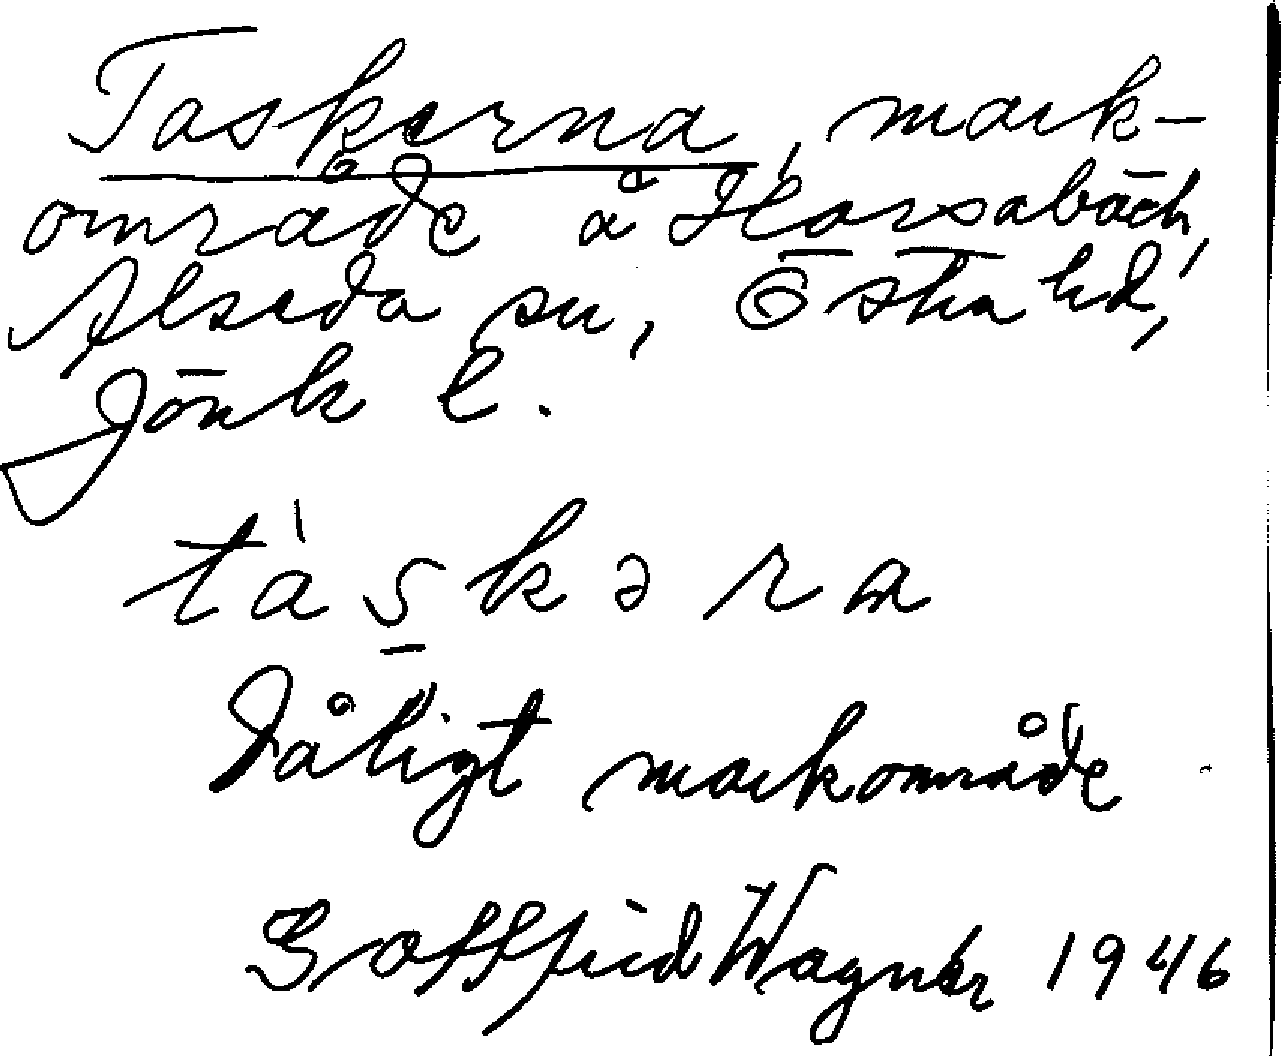 Taskerna, mark-
område å Horsabäck,
Alseda sn, Östra hd,
Jönk l.
tàs̱kəra
Dåligt markområde
Gottfrid Wagner 1946